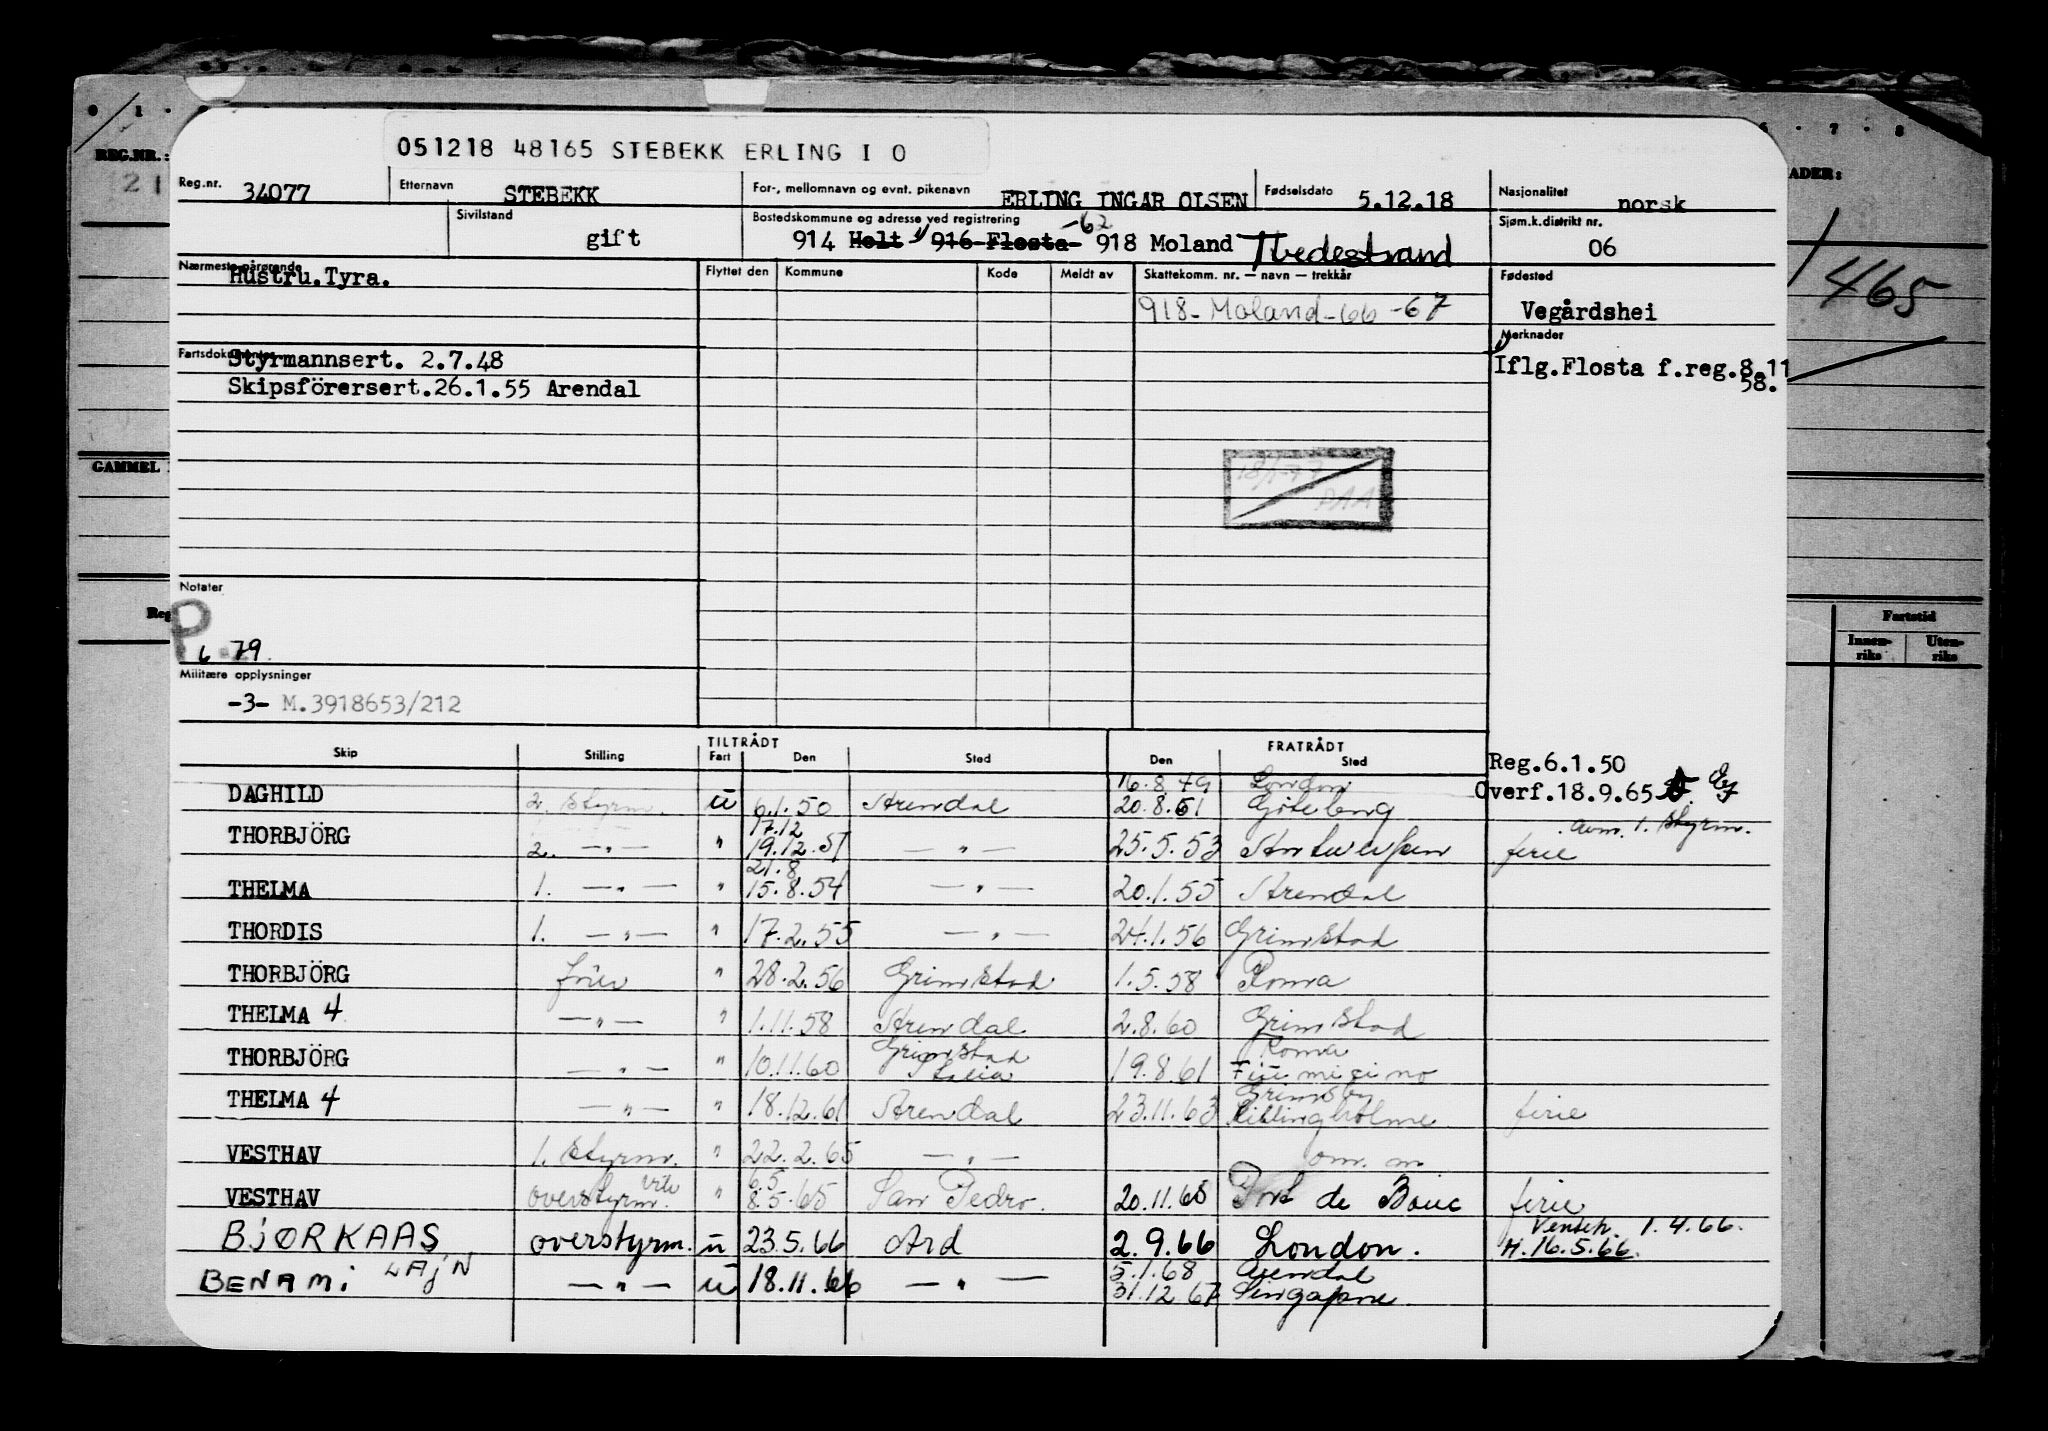 051218 48165 STEBEKK ERLING I O
REG.NR.:
Reg.nr. 34077 Etternavn STEBEKK For-, mellomnavn og evnt. pikenavn ERLING INGAR OLSEN Fødselsdato 5.12.18 Nasjonalitet norsk
Sivilstand gift Bostedskommune og adresse ved registrering 914 Holt 1) 916 Flosta -62 918 Moland Tvedestrand Sjøm.k.distrikt nr. 06
Nærmeste pårørende Hustru.Tyra. Flyttet den Kommune Kode Meldt av Skattekomm. nr. — navn — trekkår Fødested
918- Moland-66-67 Vegårdshei
465
Merknader
Fartsdokumenter Styrmannsert. 2.7.48 1) Iflg.Flosta f.reg.8.11
58.
Skipsförersert.26.1.55 Arendal
GAMMEL
18/1-77
PAA
Notater
P
6-79.
Fartstid
Innenriks Utenriks
Militære opplysninger
-3- M.3918653/212
TILTRÅDT FRATRÅDT
Skip Stilling Fart Den Sted Den Sted
Reg.6.1.50
Overf.18.9.65
16.8.49 London
DAGHILD 2. styrm. u 6.1.50 Arendal 20.8.51 Göteborg
avm. 1. styrm.
17.12
THORBJÖRG 2. —"— " 19.12.51 —"— 25.5.53 Antwerpen ferie
21.8
THELMA 1. —"— " 15.8.54 —"— 20.1.55 Arendal
THORDIS 1. —"— " 17.2.55 —"— 24.1.56 Grimstad
THORBJÖRG förer " 28.2.56 Grimstad 1.5.58 Roma
THELMA 4 —"— " 1.11.58 Arendal 2.8.60 Grimstad
Grimstad Roma
THORBJÖRG —"— " 10.11.60 Italia 19.8.61 Fiumicino
Grimsby
THELMA 4 —"— " 18.12.61 Arendal 23.11.63 Killingholme ferie
VESTHAV 1. styrm. " 22.2.65 —"— om. m
6.5
VESTHAV overstyrm. " 8.5.65 San Pedro. 20.11.65 Port de Bouc ferie
Venteh. 1.4.66.
BJØRKAAS overstyrm. u 23.5.66 Ard 2.9.66 London. H. 16.5.66.
5.1.68 Arendal
BENAMI LAJN —"— u 18.11.66 —"— 31.12.67 Singapore